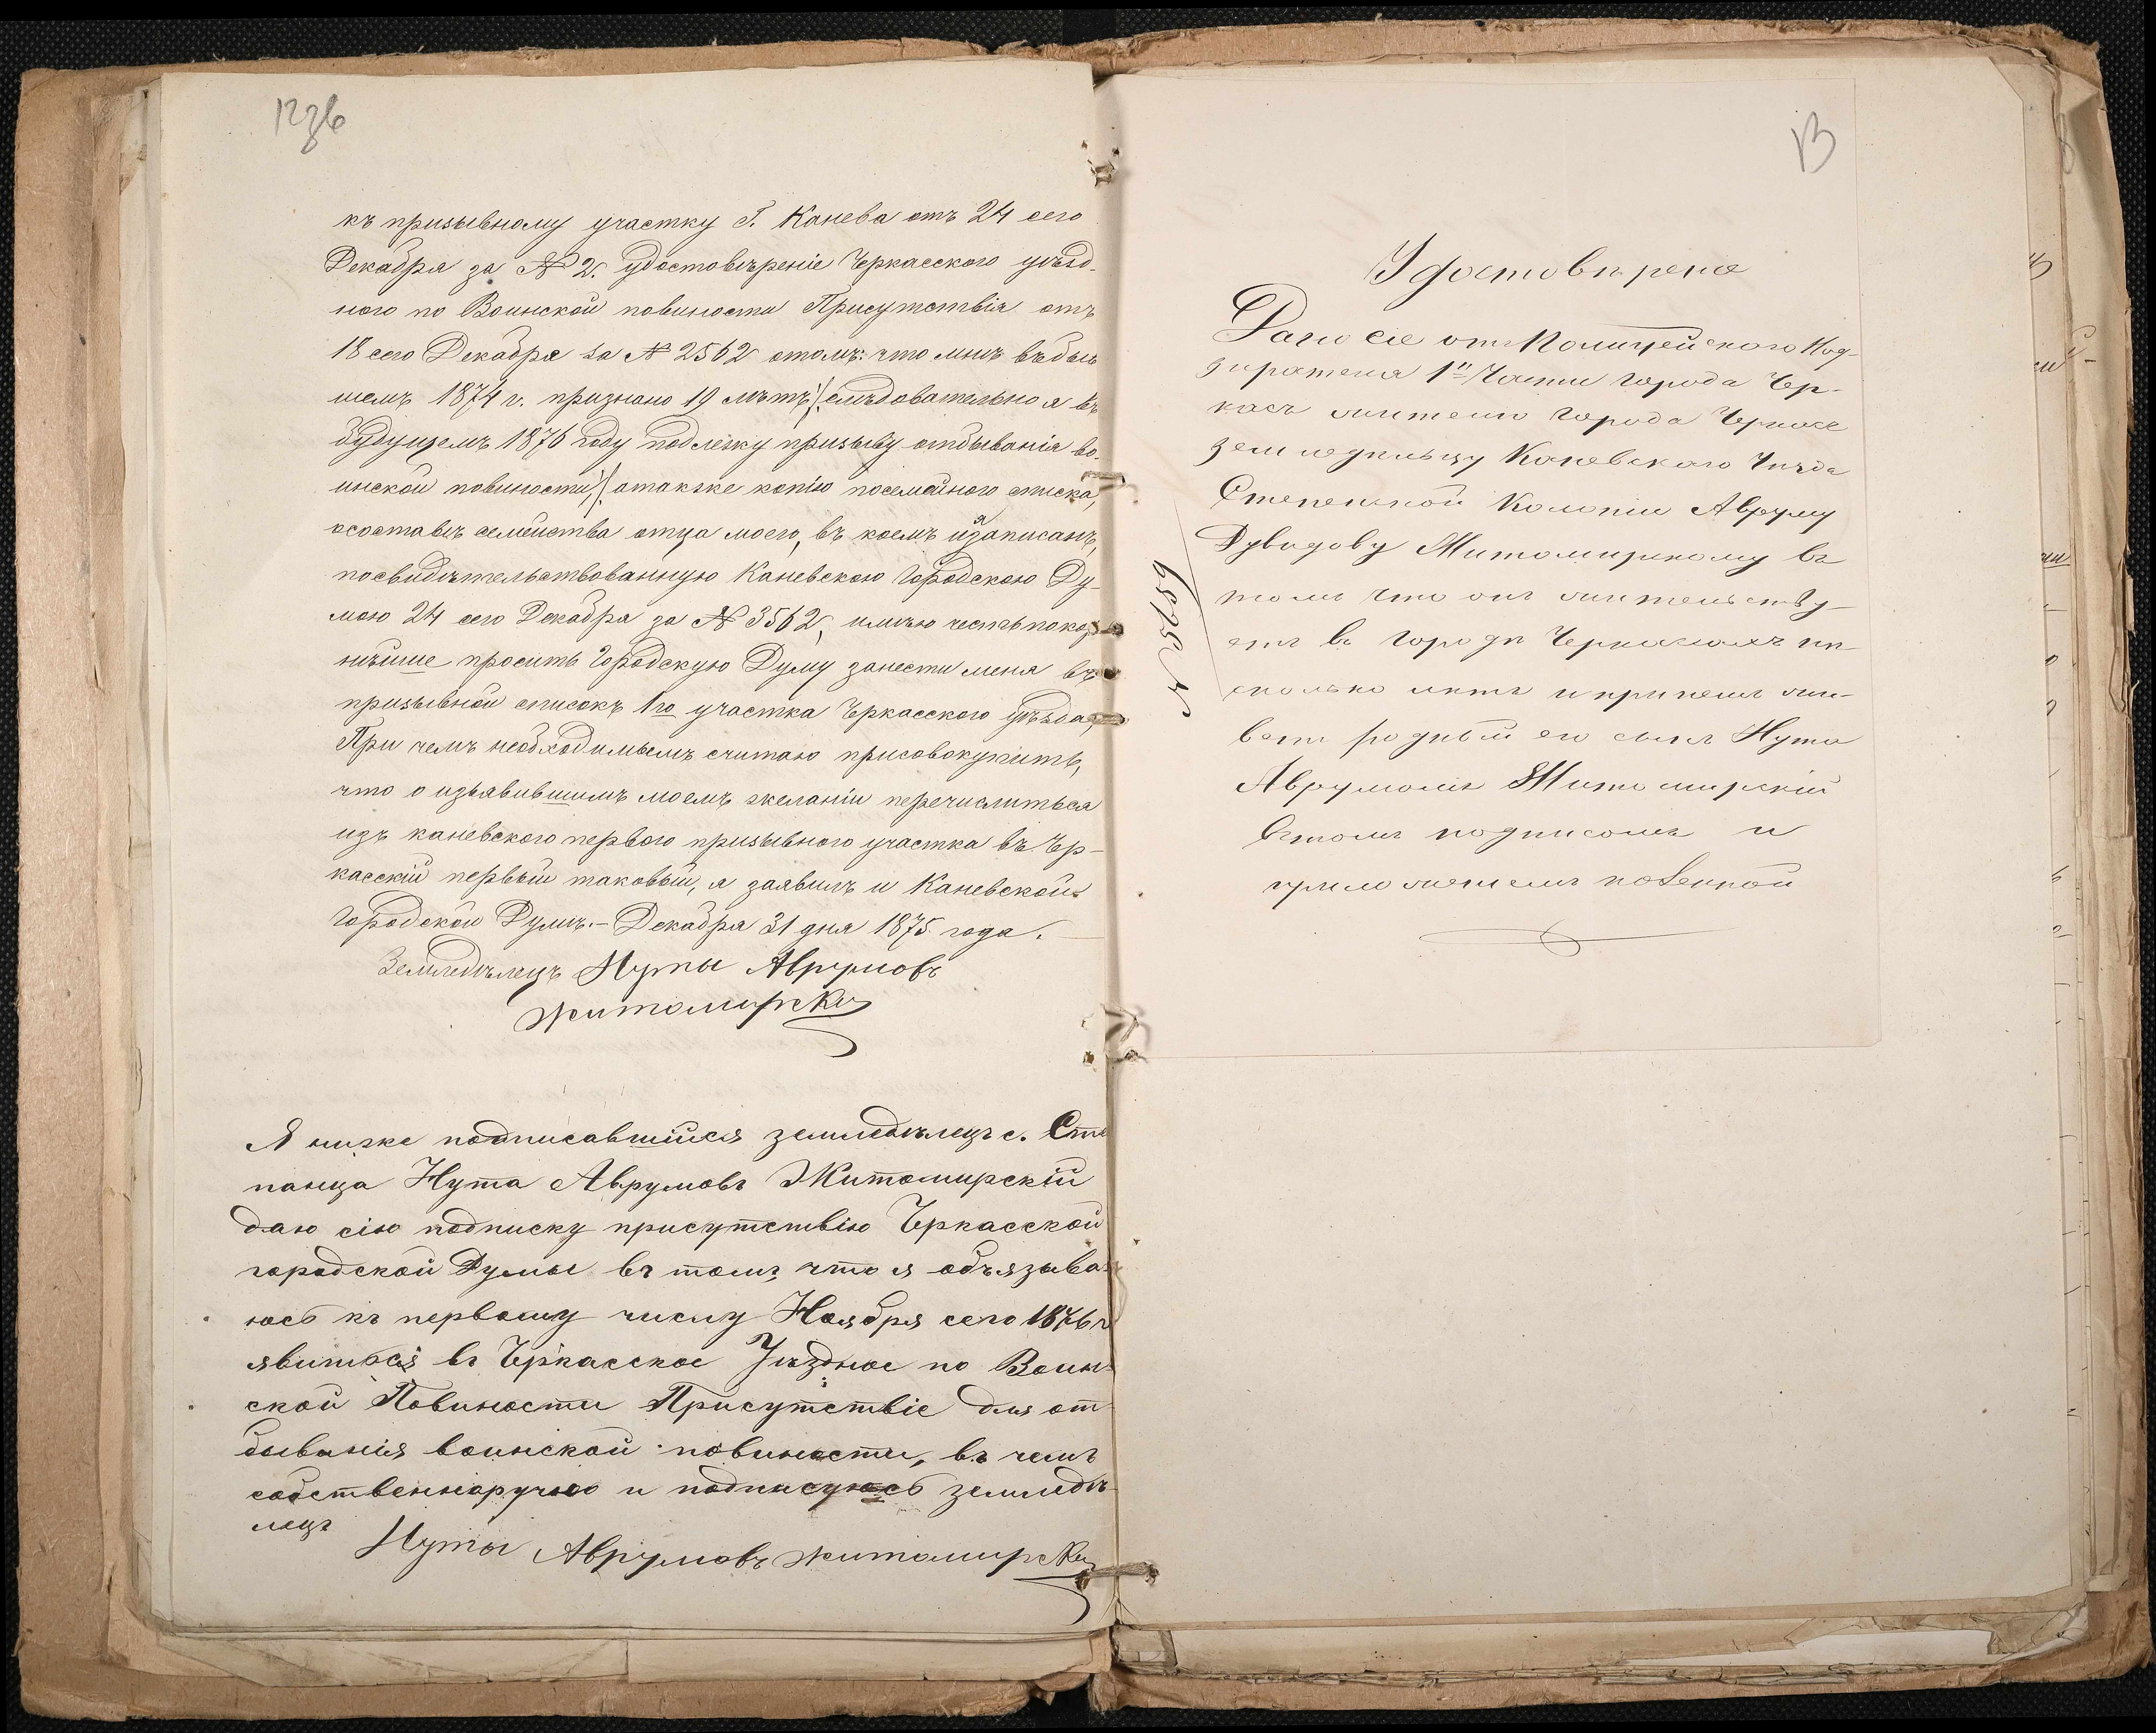 12зв
къ призывному участку Г. Канева отъ 24 сего
Декабря за № 2. удостовѣреніе Черкасского уѣзд-
ного по Воинской повиности Присутствія отъ
18 сего Декабря за № 2562 отомъ: что мнѣ въ быв
шемъ 1874 г. признано 19 лѣтъ/: слѣдовательно я въ
будущемъ 1876 году подлежу призыву отбыванія во-
инской повиности:/ атакже копію посемейного списка,
осоставѣ семейства отца моего, въ коемъ и я записанъ,
посвидѣтельствованную Каневскою Городскою Ду-
мою 24 сего Декабря за № 3562, имѣю честь покор
нѣйше просить Городскую Думу занести меня въ
призывной списокъ 1го участка Черкасского уѣзда,
При чемъ необходимымъ считаю присовокупить,
что о изъявившимъ моемъ желаніи перечислиться
изъ каневского первого призывного участка въ Чер-
касскій первый таковый, я заявилъ и Каневской
Городской Думѣ.- Декабря 31 дня 1875 года.
Земледѣлецъ Нуты Аврумовъ
житомирски
Я ниже подписавшійся земледѣлецъ с. Сте
панца Нута Аврумовъ Житомирскій
даю сію подписку присутствію Черкасской
городской Думы въ томъ, что я обязыва
юсь къ первому числу Ноября сего 1876 г
явиться въ Черкасское Уѣздное по Воин
ской Повиности Присутствіе для от
быванія воинской повиности, въ чемъ
собственноручно и подписуюсь земледѣ
лецъ
Нуты Аврумовъ житомирски
13
Удостовѣрение
Дано сіе отъ Полицейского Над-
зирателя 1й Части города Чер-
касъ жителю города Черкасс
земледѣльцу Каневского Уѣзда
Степенской Колоніи Авруму
Дувидову Житомирскому въ
томъ что онъ жительству-
етъ въ городѣ Черкасахъ нѣ-
сколько летъ и при немъ жи-
ветъ родный его сынъ Нута
Аврумовъ Житомирскій
Вътомъ подписомъ и
приложениемъ казенной